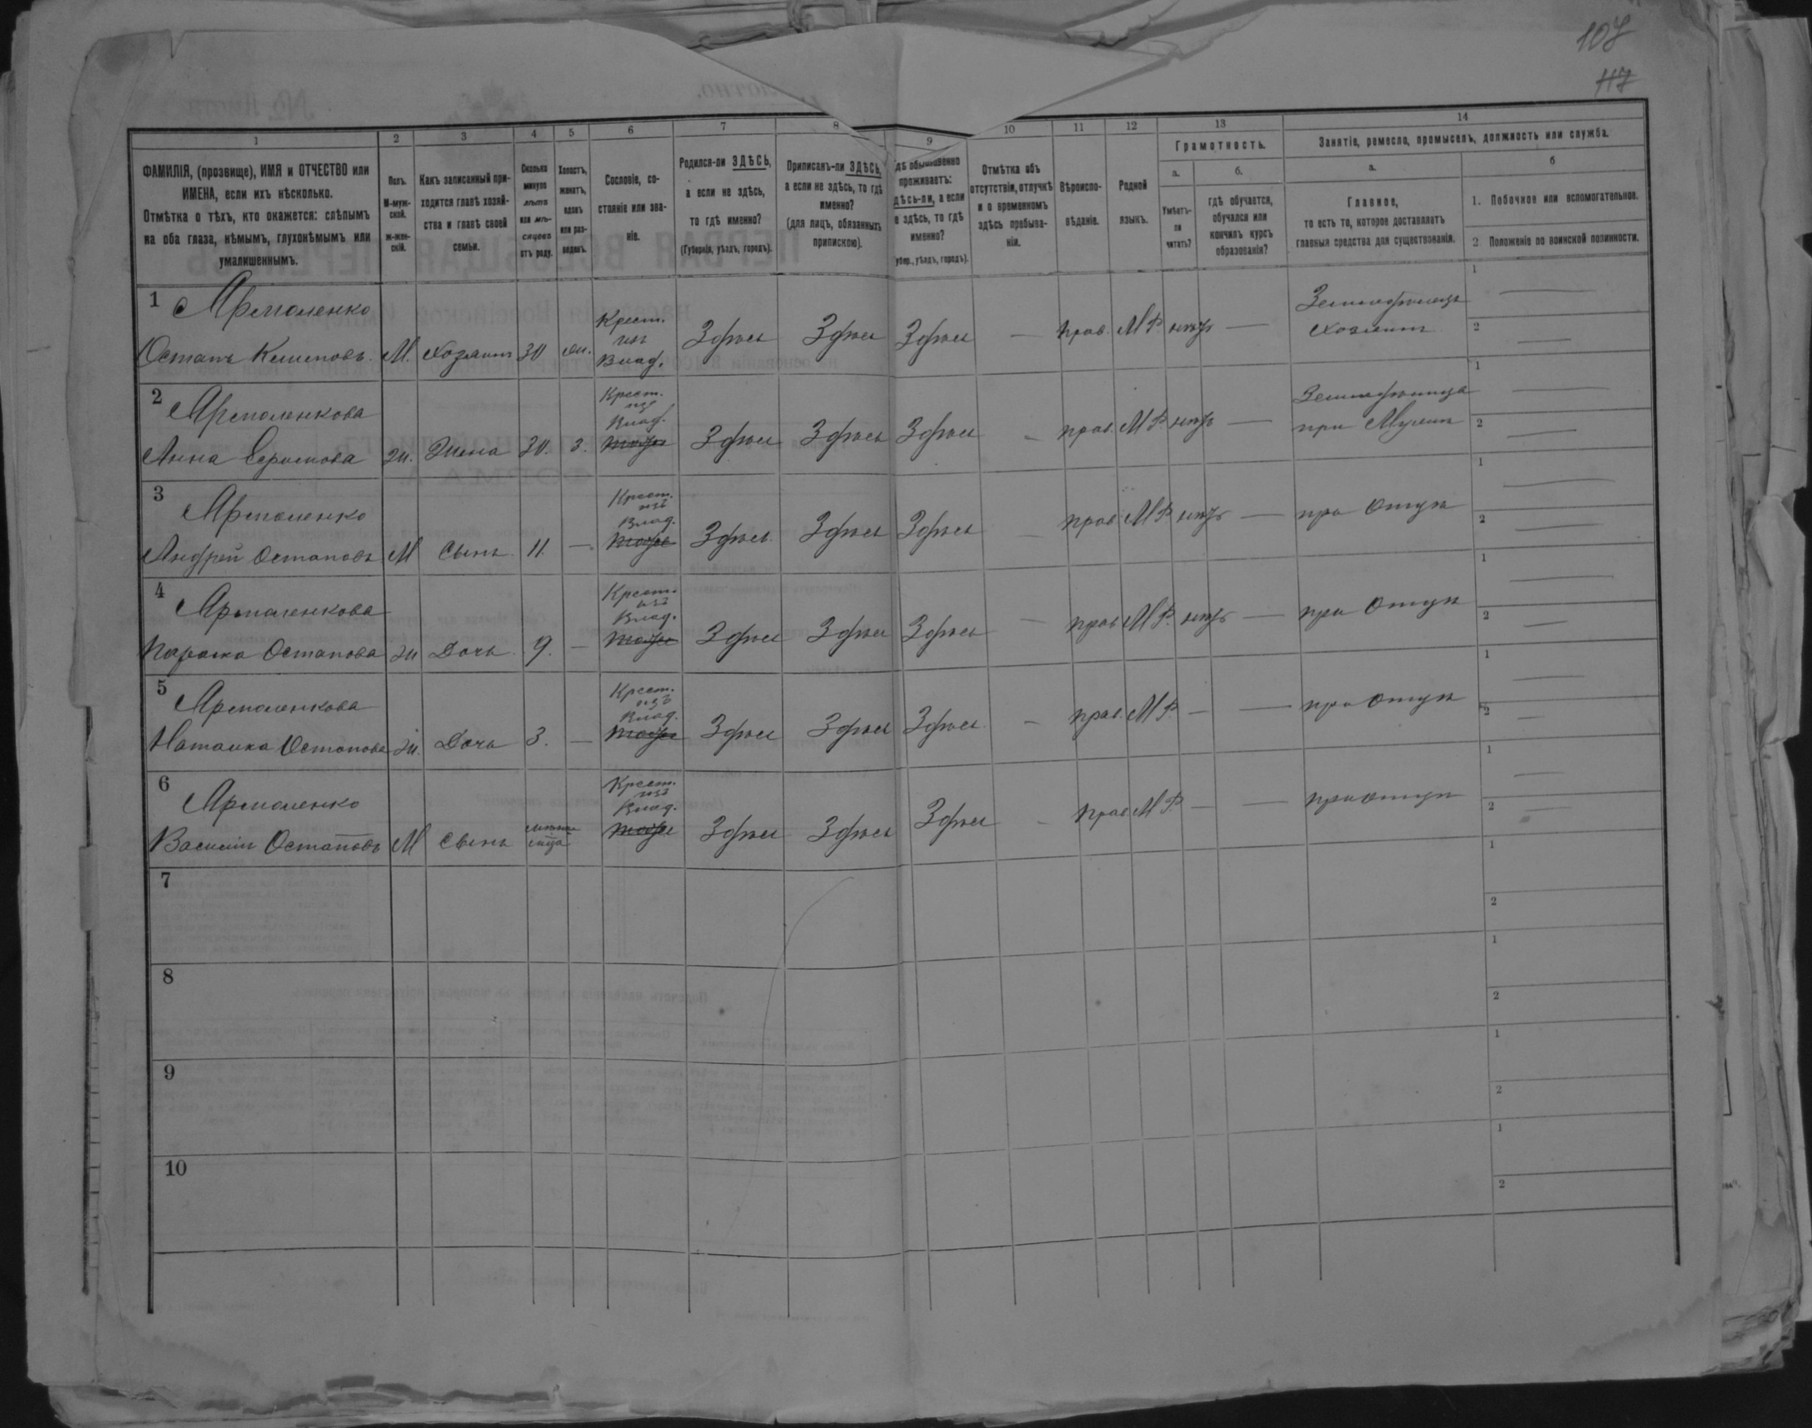 107
117
1
2
3
4
5
6
7
8
9
10
11
12
13
14
ФАМИЛІЯ, (прозвище), ИМЯ и ОТЧЕСТВО или
ИМЕНА, если ихъ нѣсколько.
Отмѣтка о тѣхъ, кто окажется: слѣпымъ
на оба глаза, нѣмымъ, глухонѣмымъ или
умалишеннымъ.
Полъ.
М-муж-
ской.
ж-жен-
скій.
Какъ записанный при-
ходится главѣ хозяй-
ства и главѣ своей
семьи.
Сколько
минуло
лѣтъ
или мѣ-
сяцевъ
отъ роду.
Холостъ,
женатъ,
вдовъ
или раз-
веденъ.
Сословіе, со-
стояніе или зва-
ніе.
Родился-ли ЗДѢСЬ,
а если не здѣсь,
то гдѣ именно?
(Губернія, уѣздъ, городъ).
Приписанъ-ли ЗДѢСЬ,
а если не здѣсь, то гдѣ
именно?
(для лицъ, обязанныхъ
припискою).
обыкновенно
проживаетъ:
здѣсь-ли, а если
не здѣсь, то гдѣ
именно?
губер., уѣздъ, городъ).
Отмѣтка объ
отсутствіи, отлучкѣ
и о временномъ
здѣсь пребыва-
ніи.
Вѣроиспо-
вѣданіе.
Родной
языкъ.
Грамотность.
а.
Умѣетъ-
ли
читать?
б.
гдѣ обучается,
обучался или
кончилъ курсъ
образованія?
Занятіе, ремесло, промыселъ, должность или служба.
а.
Главное,
то есть то, которое доставляетъ
главныя средства для существованія.
б
1. Побочное или вспомогательное.
2 Положеніе по воинской повинности.
1 Ярмоленко
Остапъ М. Хозяинъ 30 жн. Крест. изъ Влад. Здѣсь Здѣсь Здѣсь — прав. МР нѣтъ — Земледѣлецъ хозяинъ
2 Ярмоленкова
Анна ж. Жена 30. з. Крест. изъ Влад. Здѣсь Здѣсь Здѣсь — прав. МР нѣтъ — при Мужѣ
3 Ярмоленко
Андрей Остаповъ М Сынъ 11 — Крест. изъ Влад. Здѣсь Здѣсь Здѣсь — прав. МР нѣтъ — при Отцѣ
4 Ярмоленкова
Параска Остапова ж Дочь 9. — Крест. изъ Влад. Здѣсь Здѣсь Здѣсь — прав. МР. нѣтъ — при Отцѣ
5 Ярмоленкова
Наталка Остапова ж. Дочь 3. — Крест. изъ Влад. Здѣсь Здѣсь Здѣсь — прав. МР — — при Отцѣ
6 Ярмоленко
Василій Остаповъ М Сынъ Крест. изъ Влад. Здѣсь Здѣсь Здѣсь — прав. МР — — при отцѣ
7
8
9
10